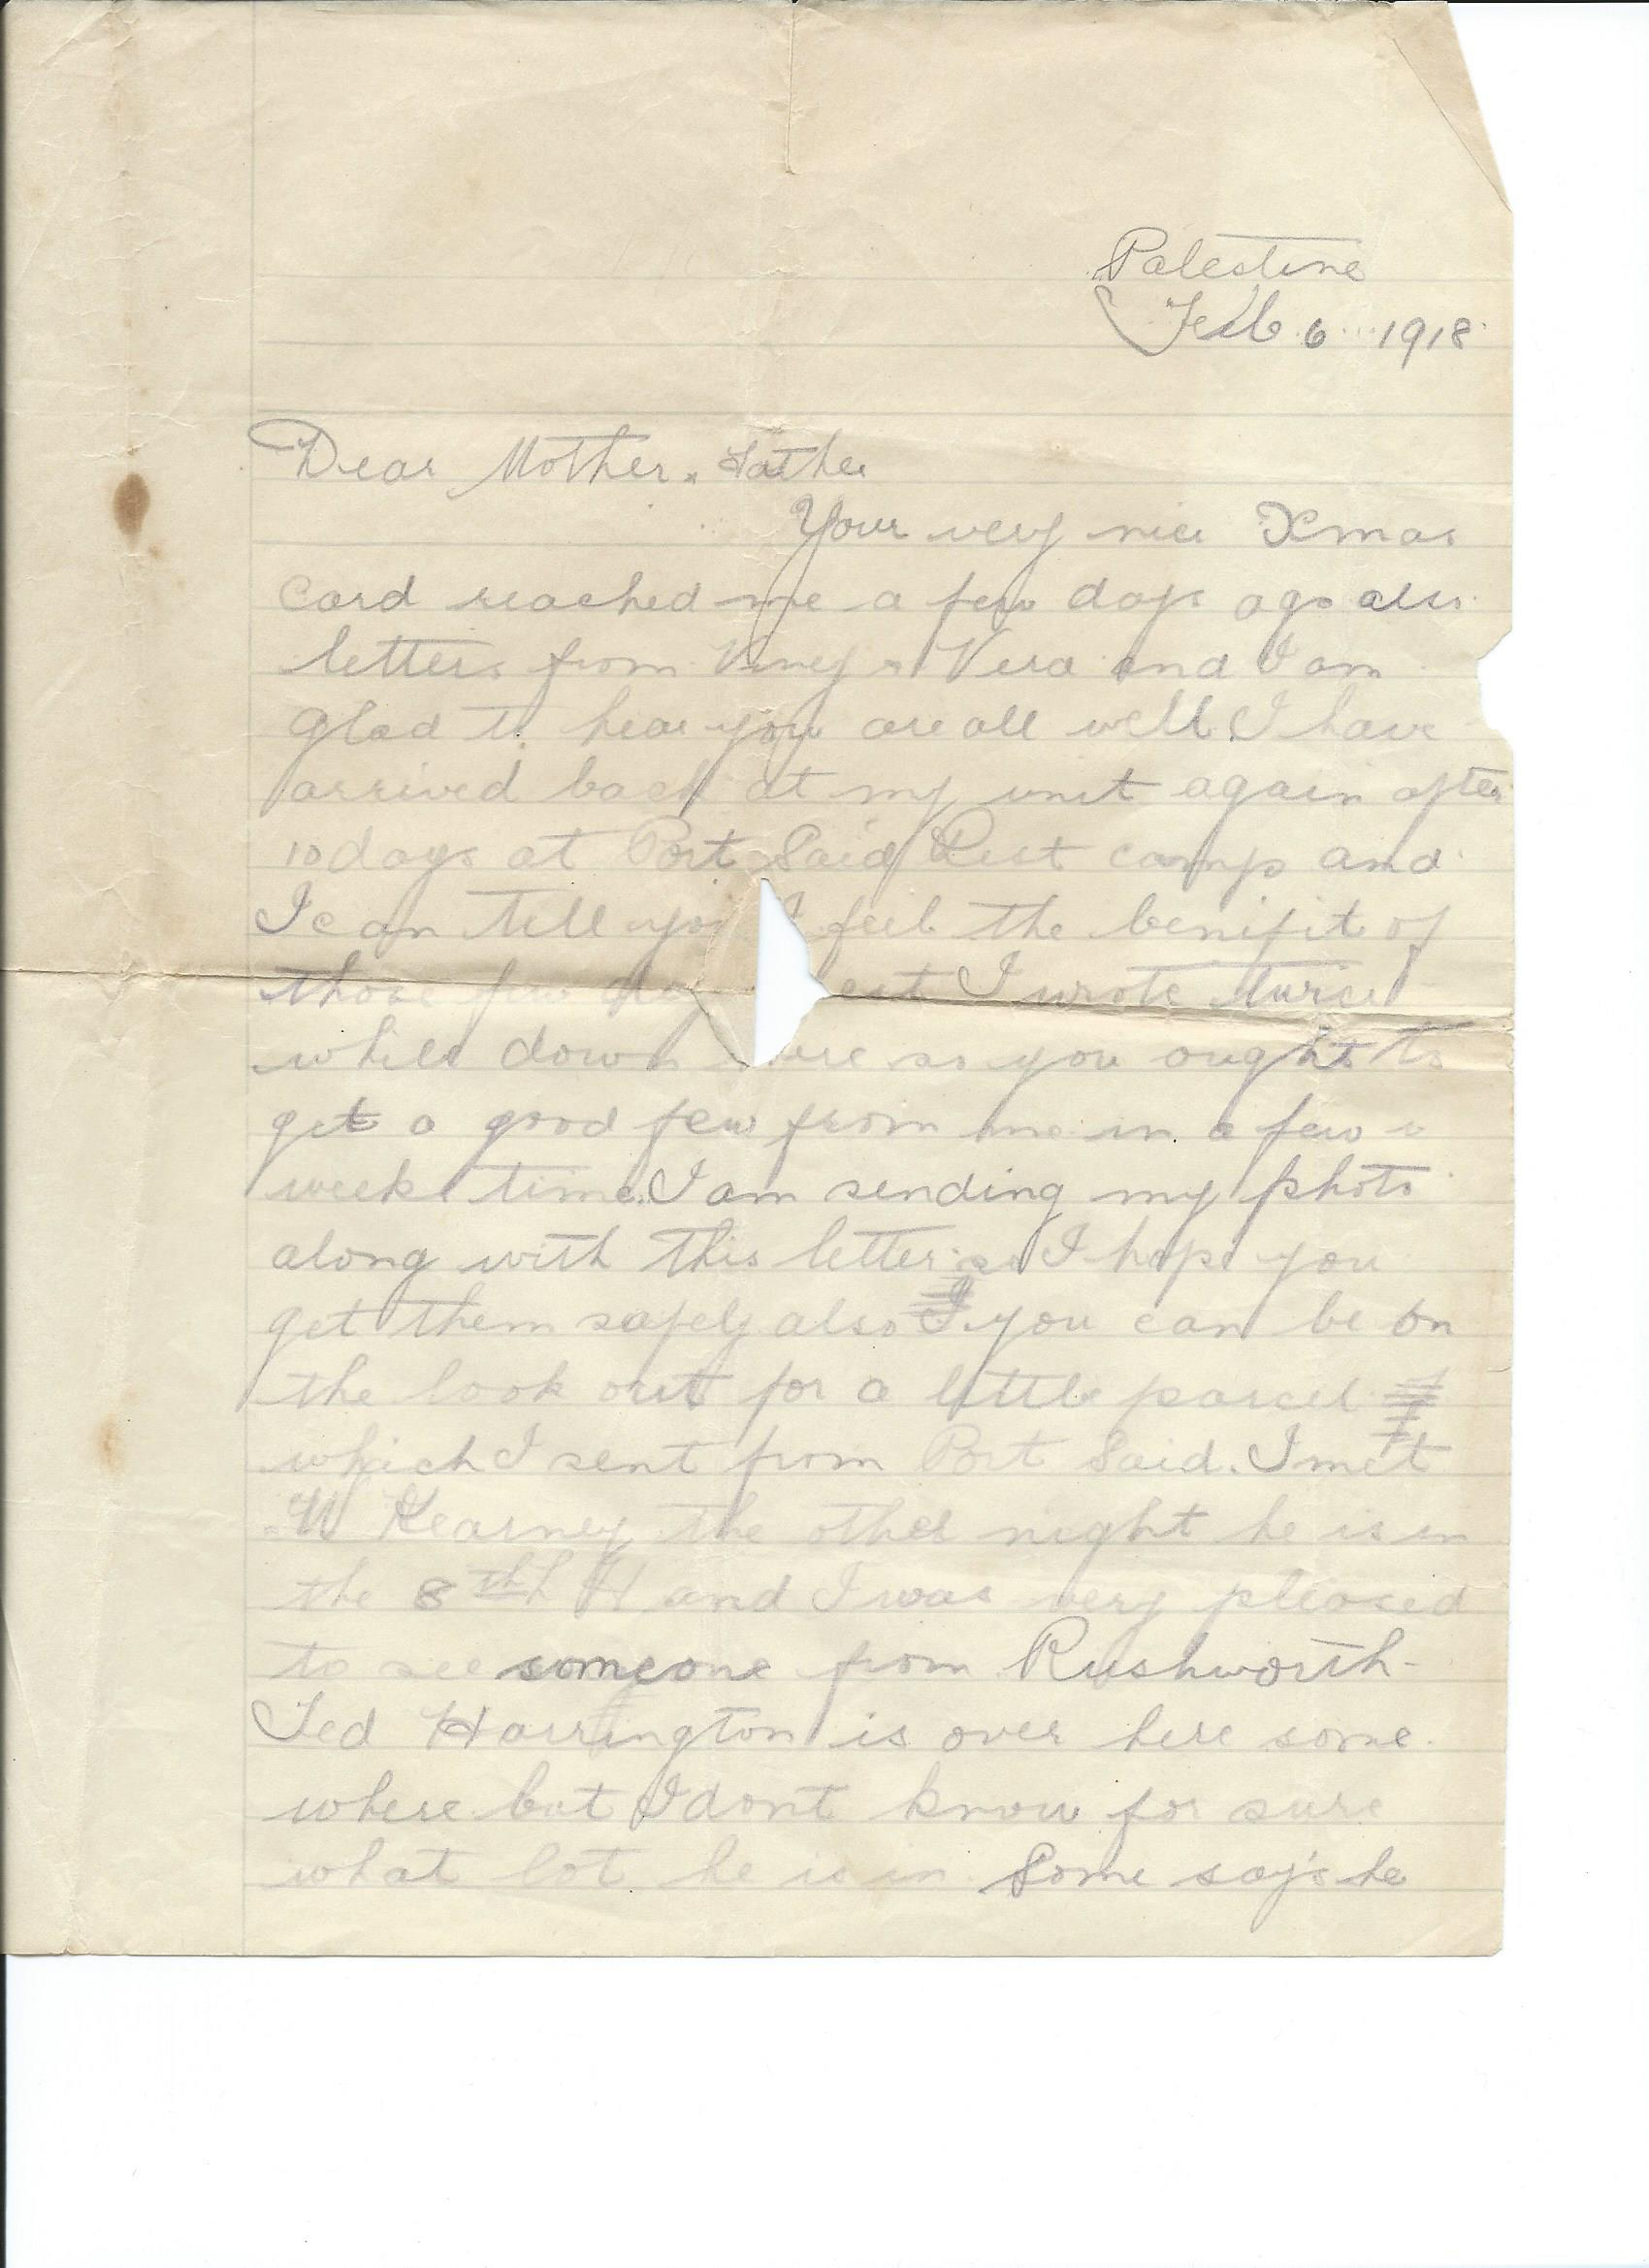 Palestine
Feb 6 1918
Dear Mother & Father
Your very nice Xmas
card reached me a few days ago also
letters from Viney & Vera and I am
glad to hear you are all well. I have
arrived back at my unit again after
10 days at Port Said Rest camp and
I can tell you I feel the benifit of
those few I wrote twice
while down so you ought to
get a good few from me in a few
weeks time. I am sending my photo
along with this letter so I hope you
get them safely also you can be on
the look out for a little parcel
which I sent from Port Said. I met
W Kearney the other night he is in
the 8th L H and I was very pleased
to see someone from Rushworth-
Ted Harrington is over here some
where but I dont know for sure
what lot he is in Some say's he